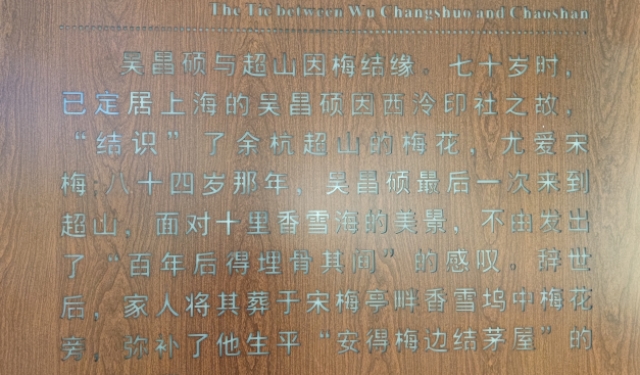 The Tie between Wu Changshuo and Chaoshan
吴昌硕与超山因梅结缘。七十岁时，
已定居上海的吴昌硕因西泠印社之故，
“结识”了余杭超山的梅花，尤爱宋
梅;八十四岁那年，吴昌硕最后一次来到
超山，面对十里香雪海的美景，不由发出
了“百年后得埋骨其间”的感叹。辞世
后，家人将其葬于宋梅亭畔香雪坞中梅花
旁，弥补了他生平“安得梅边结茅屋”的